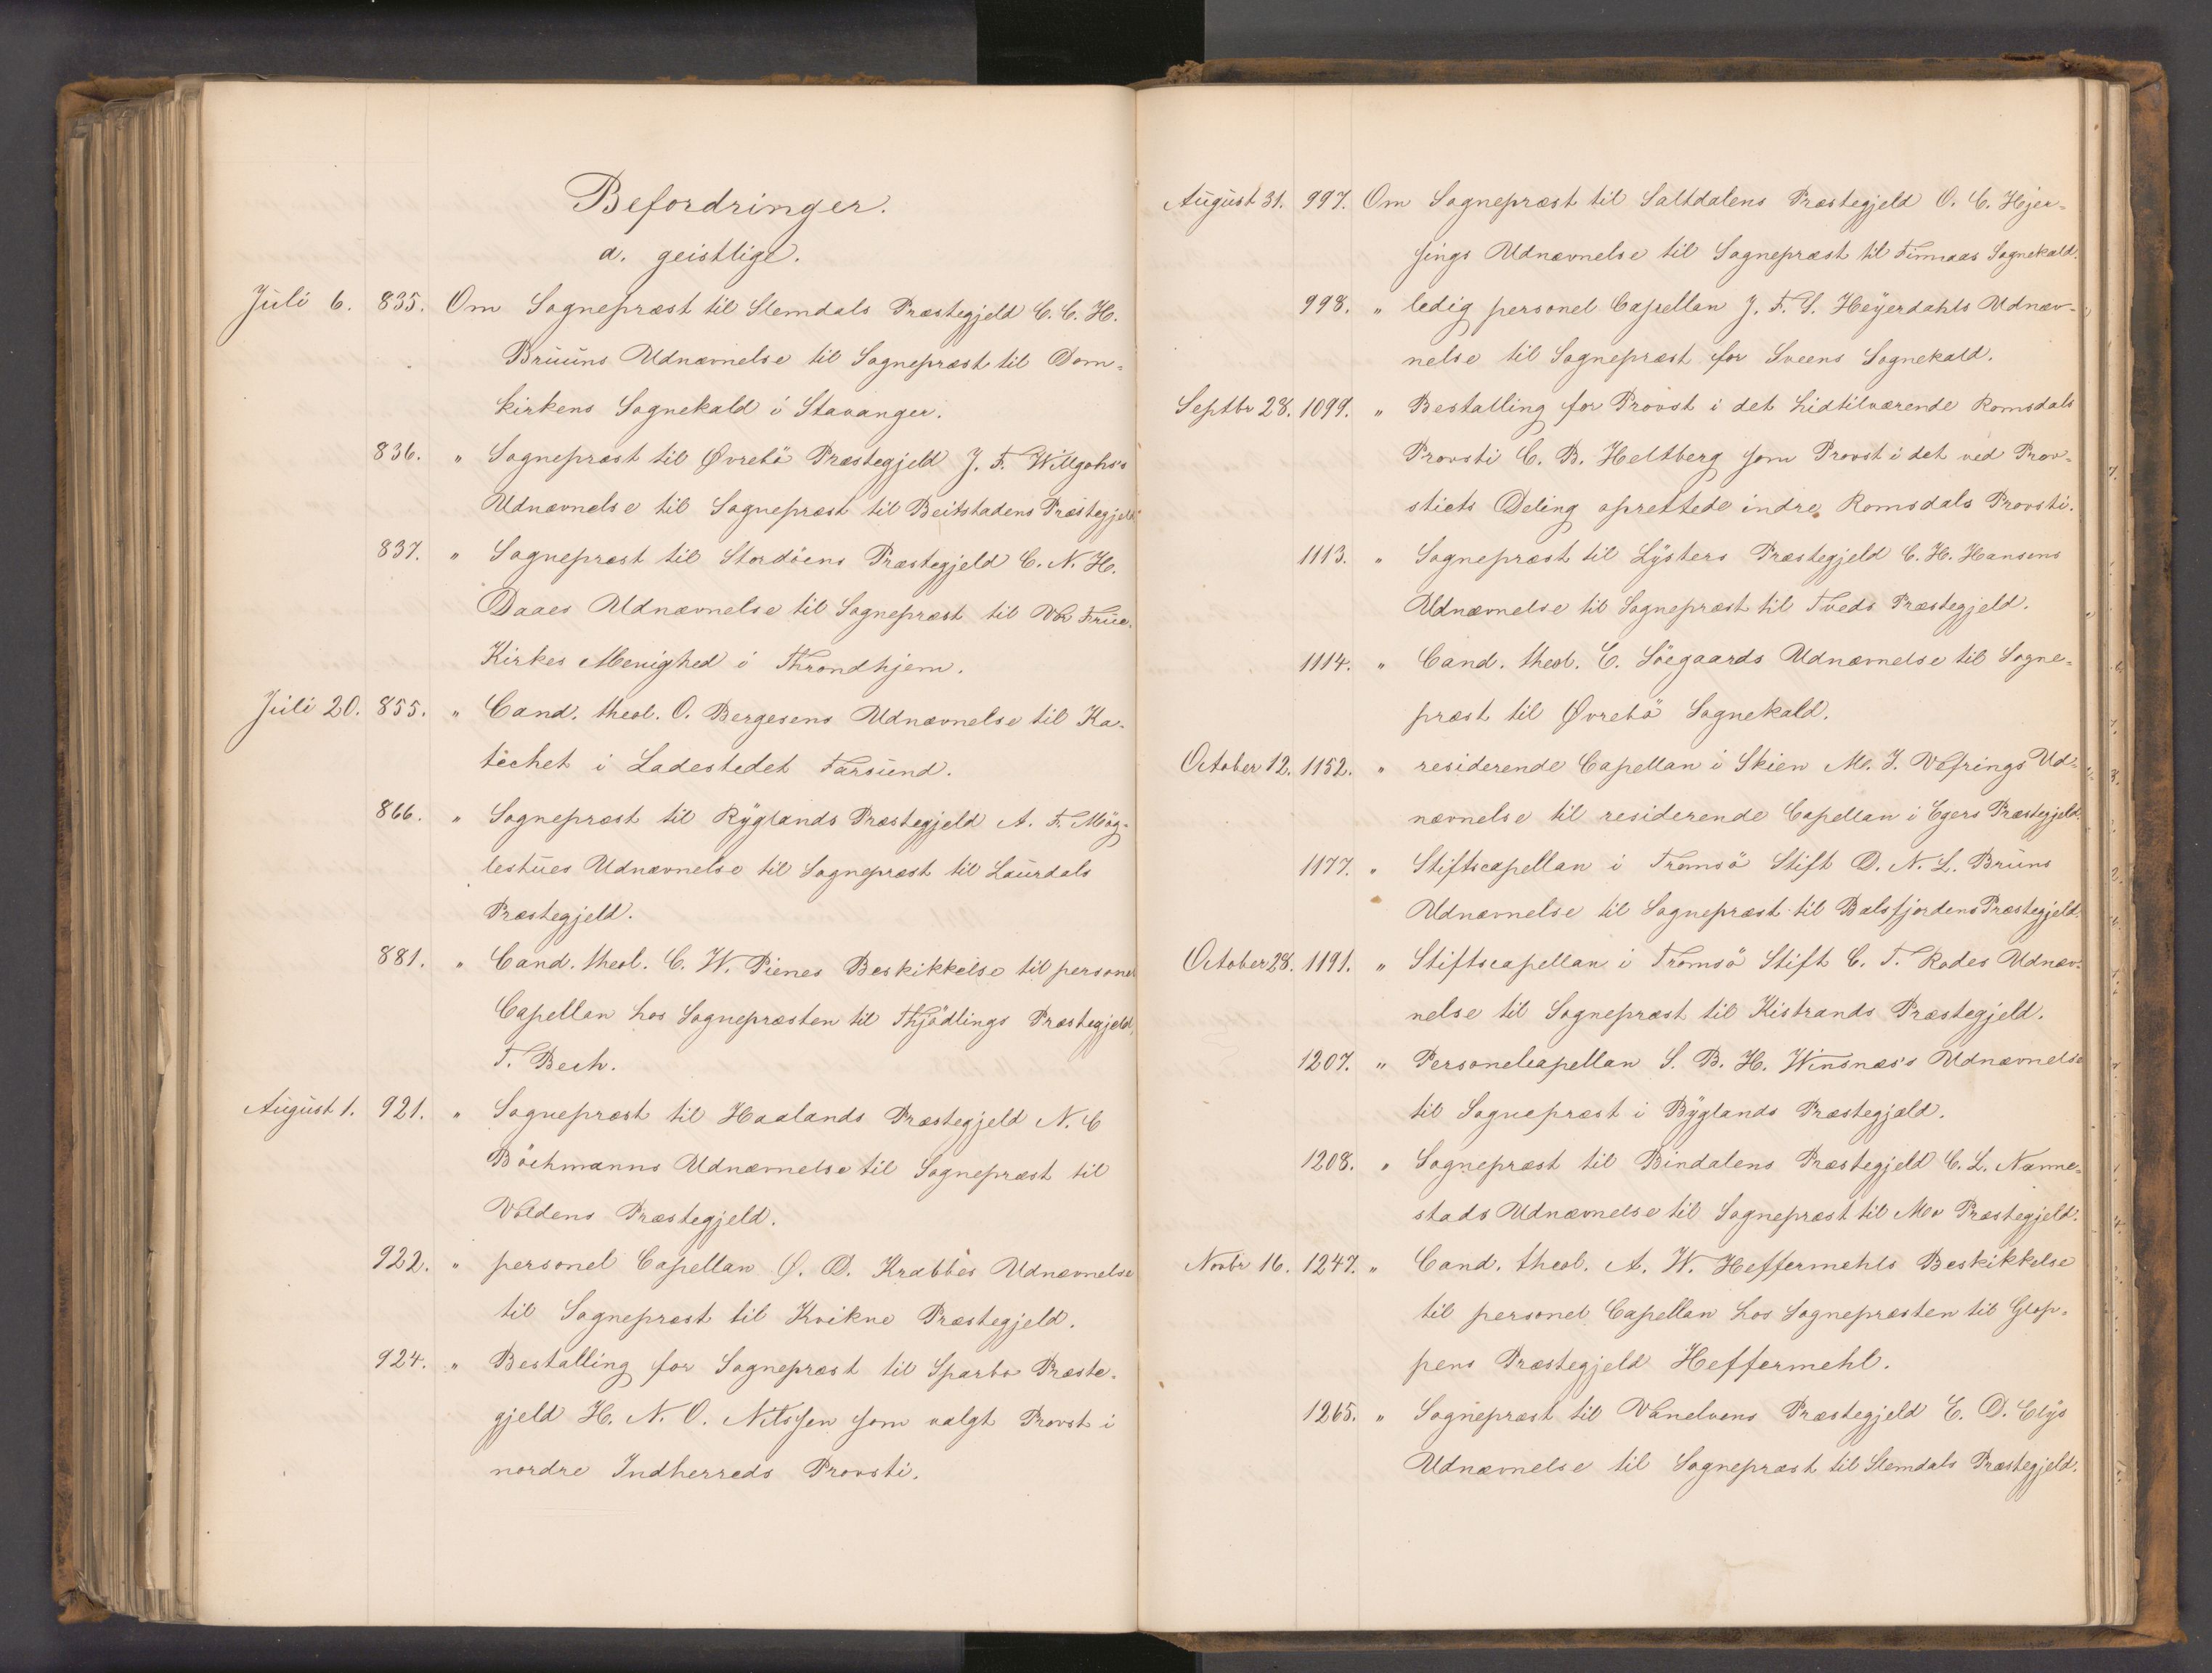 Befordringer.
a. geistlige.
Juli 6. 835. Om Sognepræst til Slemdals Præstegjeld C. C. H.
Bruuns Udnævnelse til Sognepræst til Dom-
kirkens Sognekald i Stavanger.
836. " Sognepræst til Øvrebö Præstegjeld J. F. Willgohs's
Udnævnelse til Sognepræst til Beitstadens Præstegjeld
837. " Sognepræst til Stordöens Præstegjeld C. N. H.
Daaes Udnævnelse til Sognepræst til Vor Frue
Kirkes Menighed i Throndhjem.
Juli 20. 855. " Cand. theol. O. Bergesens Udnævnelse til Ka-
techet i Ladestedet Farsund.
866. " Sognepræst til Byglands Præstegjeld A. F. Mög-
lestues Udnævnelse til Sognepræst til Laurdals
Præstegjeld.
881. " Cand. theol. C. W. Pienes Beskikkelse til personel
Capellan hos Sognepræsten til Thjödlings Præstegjeld,
F. Bech.
August 1. 921. " Sognepræst til Haalands Præstegjeld N. C
Böckmanns Udnævnelse til Sognepræst til
Voldens Præstegjeld.
922. " personel Capellan O. D. Krabbes Udnævnelse
til Sognepræst til Kvikne Præstegjeld.
924. " Bestalling for Sognepræst til Sparbo Præste-
gjeld H. N. O. Nilssen som valgt Provst i
nordre Indherreds Provsti.
August 31. 997. Om Sognepræst til Saltdalens Præstegjeld O. C. Hjer-
sings Udnævnelse til Sognepræst til Finnaas Sognekald.
998. " ledig personel Capellan J. F. S. Heyerdahls Udnæv-
nelse til Sognepræst for Sveens Sognekald.
Septbr 28. 1099. " Bestalling for Provst i det hidtilværende Romsdals
Provsti C. B. Heltberg som Provst i det ved Prov-
stiets Deling oprettede indre Romsdals Provsti.
1113. " Sognepræst til Lysters Præstegjeld C. H. Hansens
Udnævnelse til Sognepræst til Tveds Præstegjeld.
1114. " Cand. theol. C. Söegaards Udnævnelse til Sogne-
præst til Øvrebö Sognekald.
October 12. 1152. " residerende Capellan i Skien M. J. Vefrings Ud-
nævnelse til residerende Capellan i Egers Præstegjeld.
1177. " Stiftscapellan i Tromsö Stift D. N. L. Bruns
Udnævnelse til Sognepræst til Balsfjordens Præstegjeld.
October 28. 1191. " Stiftscapellan i Tromsö Stift C. T. Rodes Udnæv-
nelse til Sognepræst til Kistrands Præstegjeld.
1207. " Personelcapellan S. B. H. Winsnæs's Udnævnelse
til Sognepræst i Byglands Præstegjæld.
1208. " Sognepræst til Bindalens Præstegjeld C. L. Nænne-
stads Udnævnelse til Sognepræst til Mo Præstegjeld.
Novbr 16. 1247. " Cand. theol. A. W. Heffermehls Beskikkelse
til personel Capellan hos Sognepræsten til Glop-
pens Præstegjeld Heffermehl.
1265. " Sognepræst til Vanelvens Præstegjeld E. D. Elys
Udnævnelse til Sognepræst til Slemdals Præstegjeld.